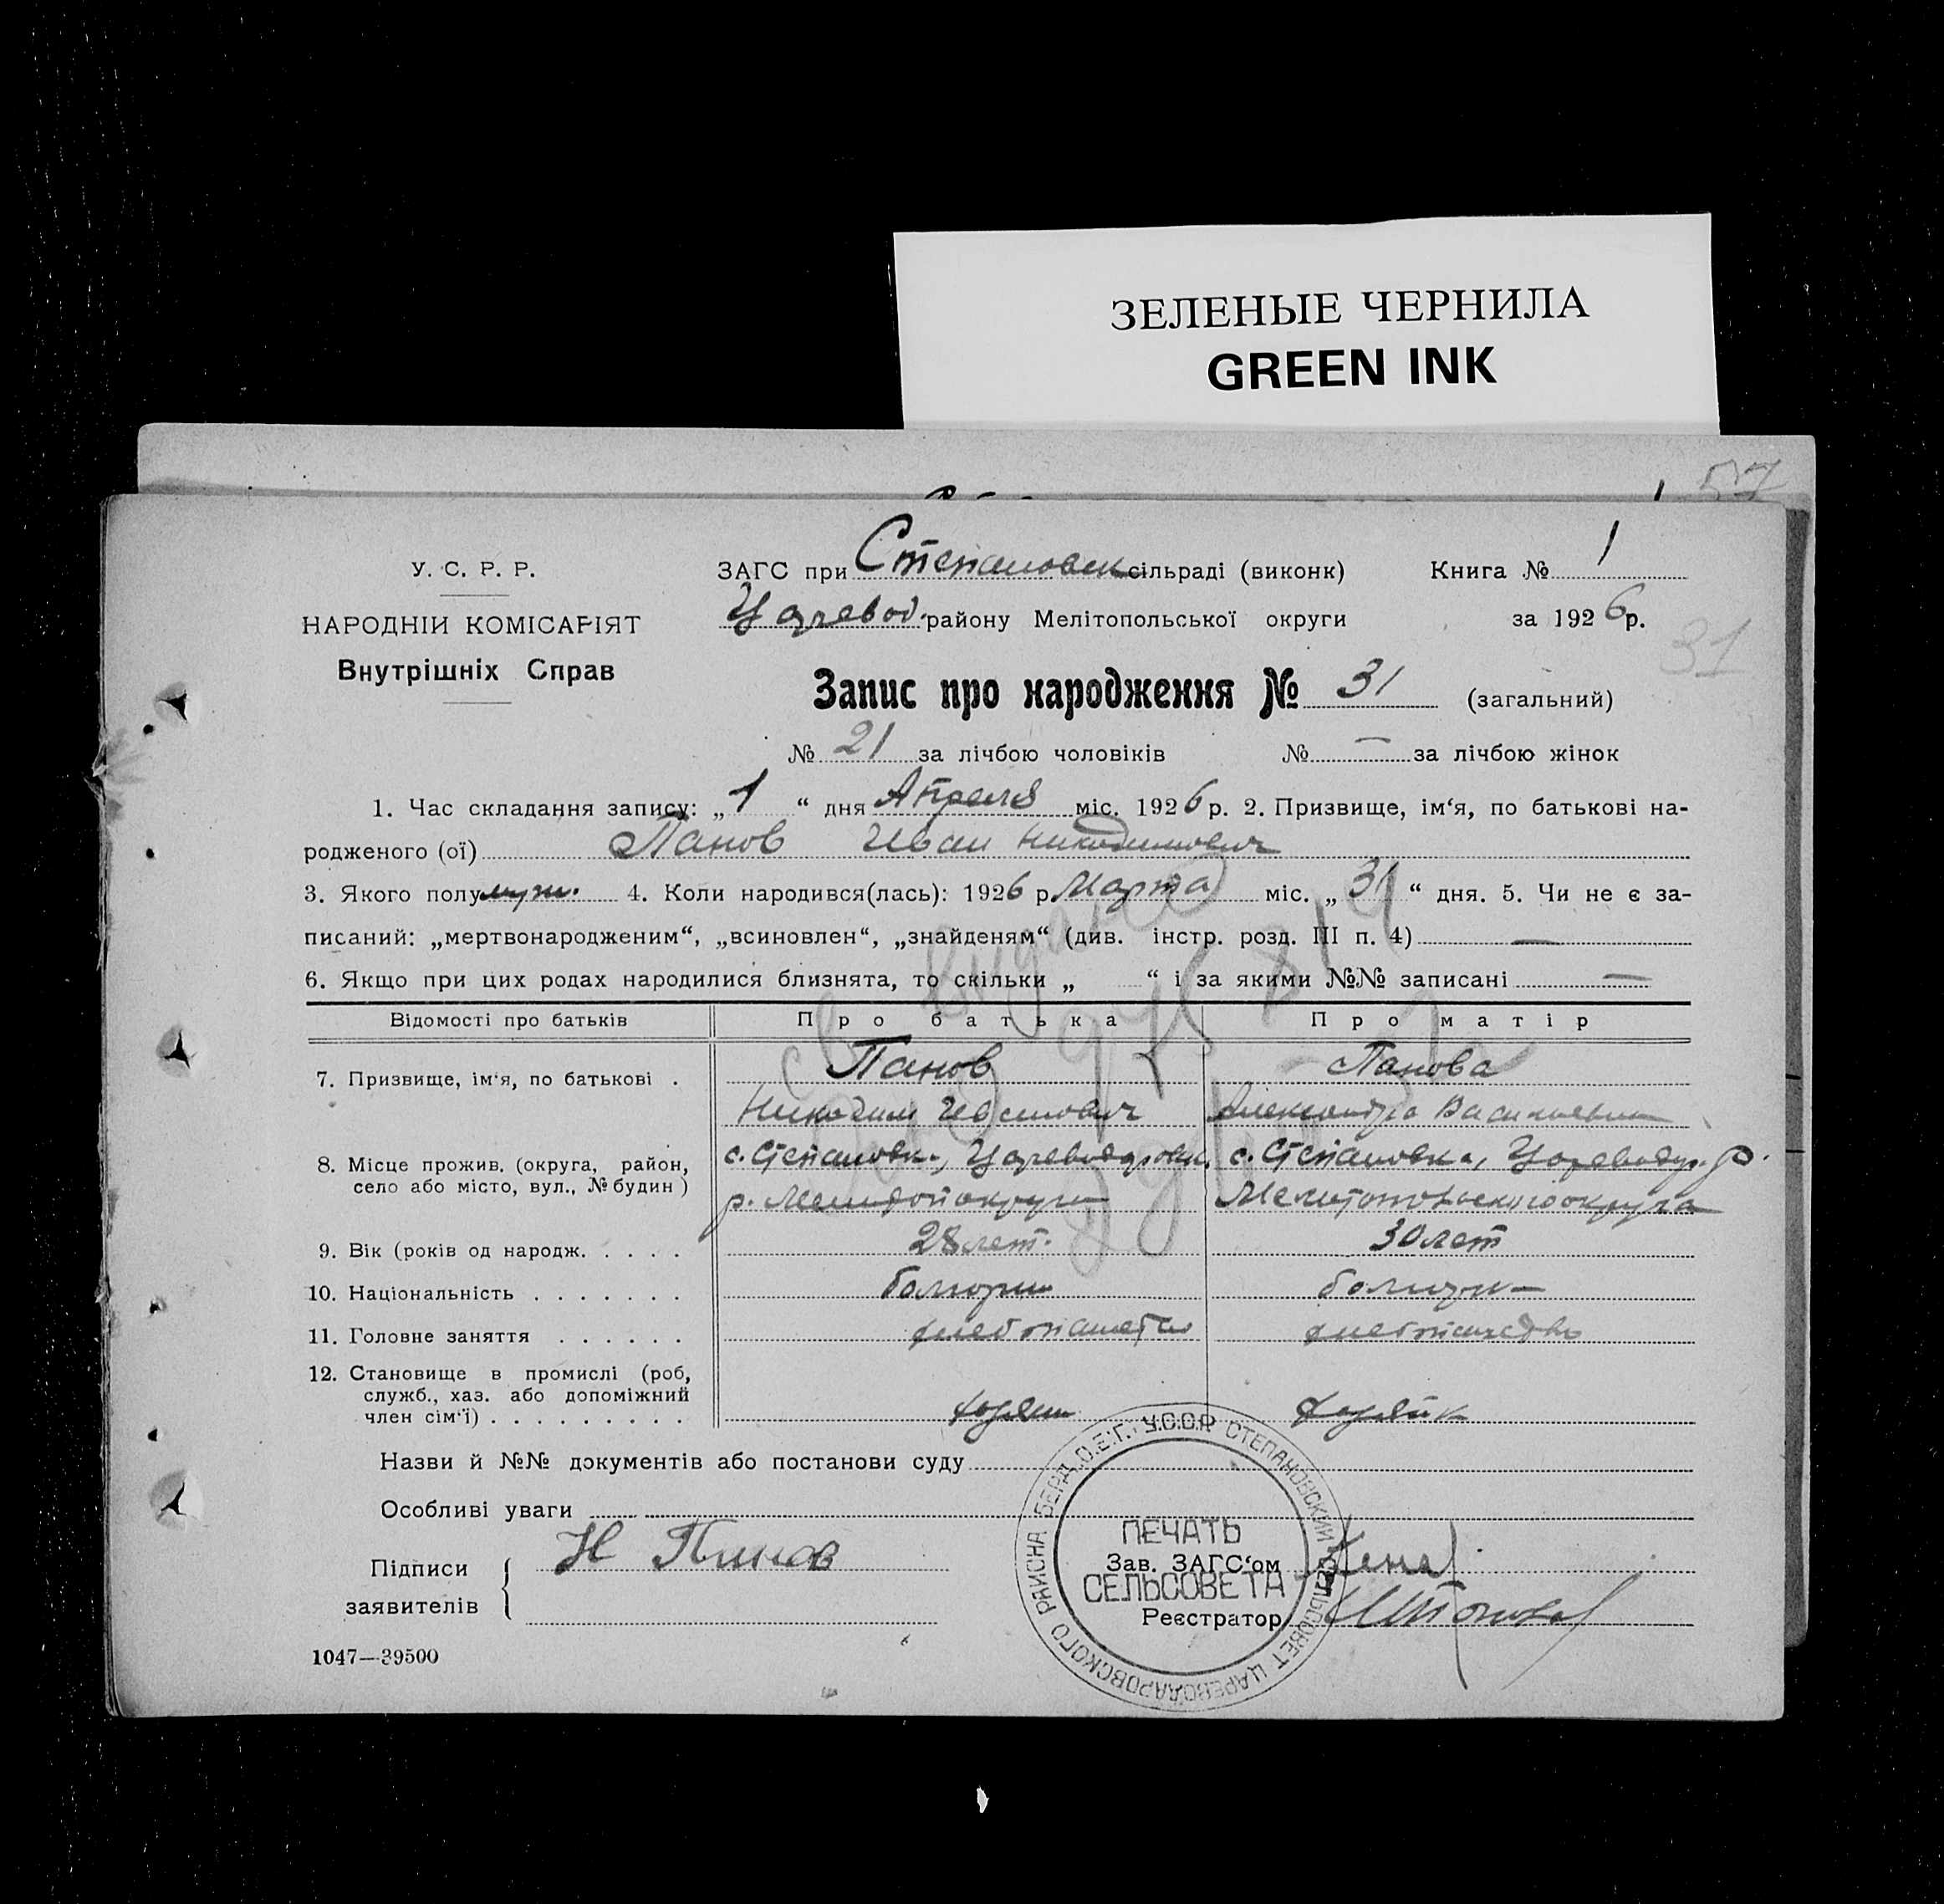 ЗЕЛЕНЫЕ ЧЕРНИЛА
GREEN INK
57
У. С. Р. Р.
НАРОДНІЙ КОМІСАРІЯТ
Внутрішніх Справ
ЗАГС при Степановск сільраді (виконк) Книга № 1
Царевод. району Мелітопольської округи за 1926 р.
31
Запис про народження № 31 (загальний)
№ 21 за лічбою чоловіків № — за лічбою жінок
1. Час складання запису: „1“ дня Апреля міс. 1926 р. 2. Призвище, ім‘я, по батькові на-
родженого (ої) Панов Иван Никодимович
3. Якого полу муж. 4. Коли народився(лась): 1926 р. Марта міс. „31“ дня. 5. Чи не є за-
писаний: „мертвонародженим“, „всиновлен“, „знайденям“ (див. інстр. розд. III п. 4) —
6. Якщо при цих родах народилися близнята, то скільки „ “ і за якими №№ записані —
Відомості про батьків Про батька Про матір
7. Призвище, ім‘я, по батькові . Панов Панова
Никодим Иванович Александра Васильевна
8. Місце прожив. (округа, район, село або місто, вул., № будин) с. Степановк., Цареводаровск. с. Степановка, Цареводар. р.
р. Мелитоп округи Мелитопольского округа
9. Вік (років од народж. . . . . 28 лет. 30 лет
10. Національність . . . . . . . болгарин болгарк
11. Головне заняття . . . . . . хлебопашество хлебопашество
12. Становище в промислі (роб, служб., хаз. або допоміжний член сім‘ї) . . . . . . . . . хозяин хозяйк
Назви й №№ документів або постанови суду
Особливі уваги
Підписи заявителів Н Панов
У.С.С.Р СТЕПАНОВСКИЙ СЕЛЬСОВЕТ ЦАРЕВОДАРОВСКОГО РАЙСНА БЕРД.О.Е.Г.
ПЕЧАТЬ
Зав. ЗАГС‘ом
СЕЛЬСОВЕТА
Реєстратор
1047—39500